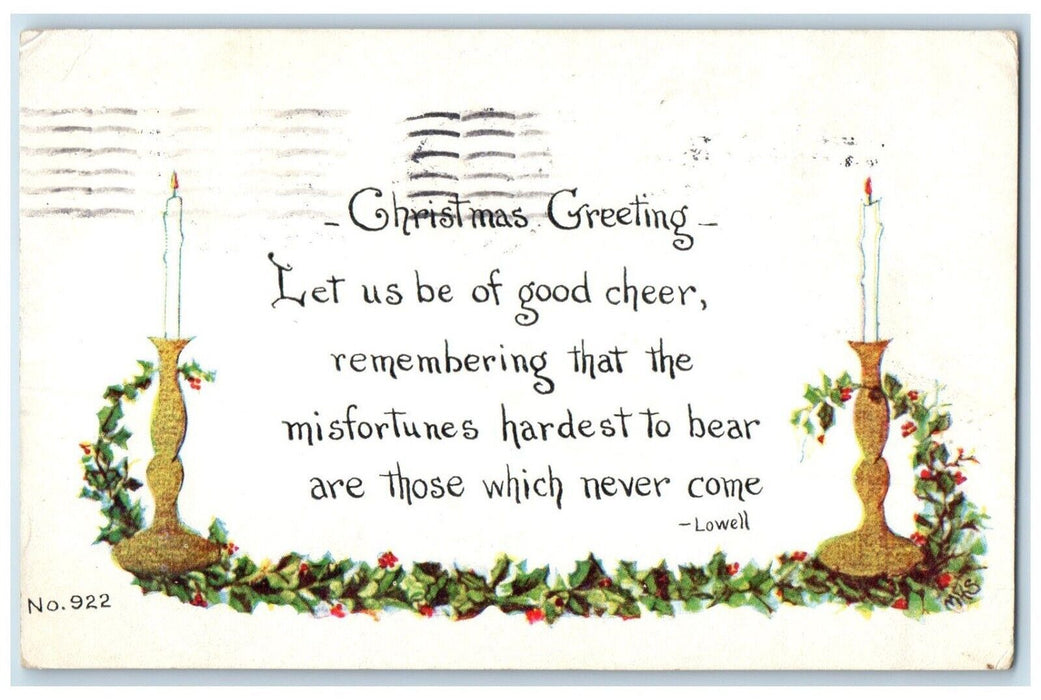 - Christmas Greeting -
Let us be of good cheer,
remembering that the
misfortunes hardest to bear
are those which never come
-Lowell
No. 922
MKS